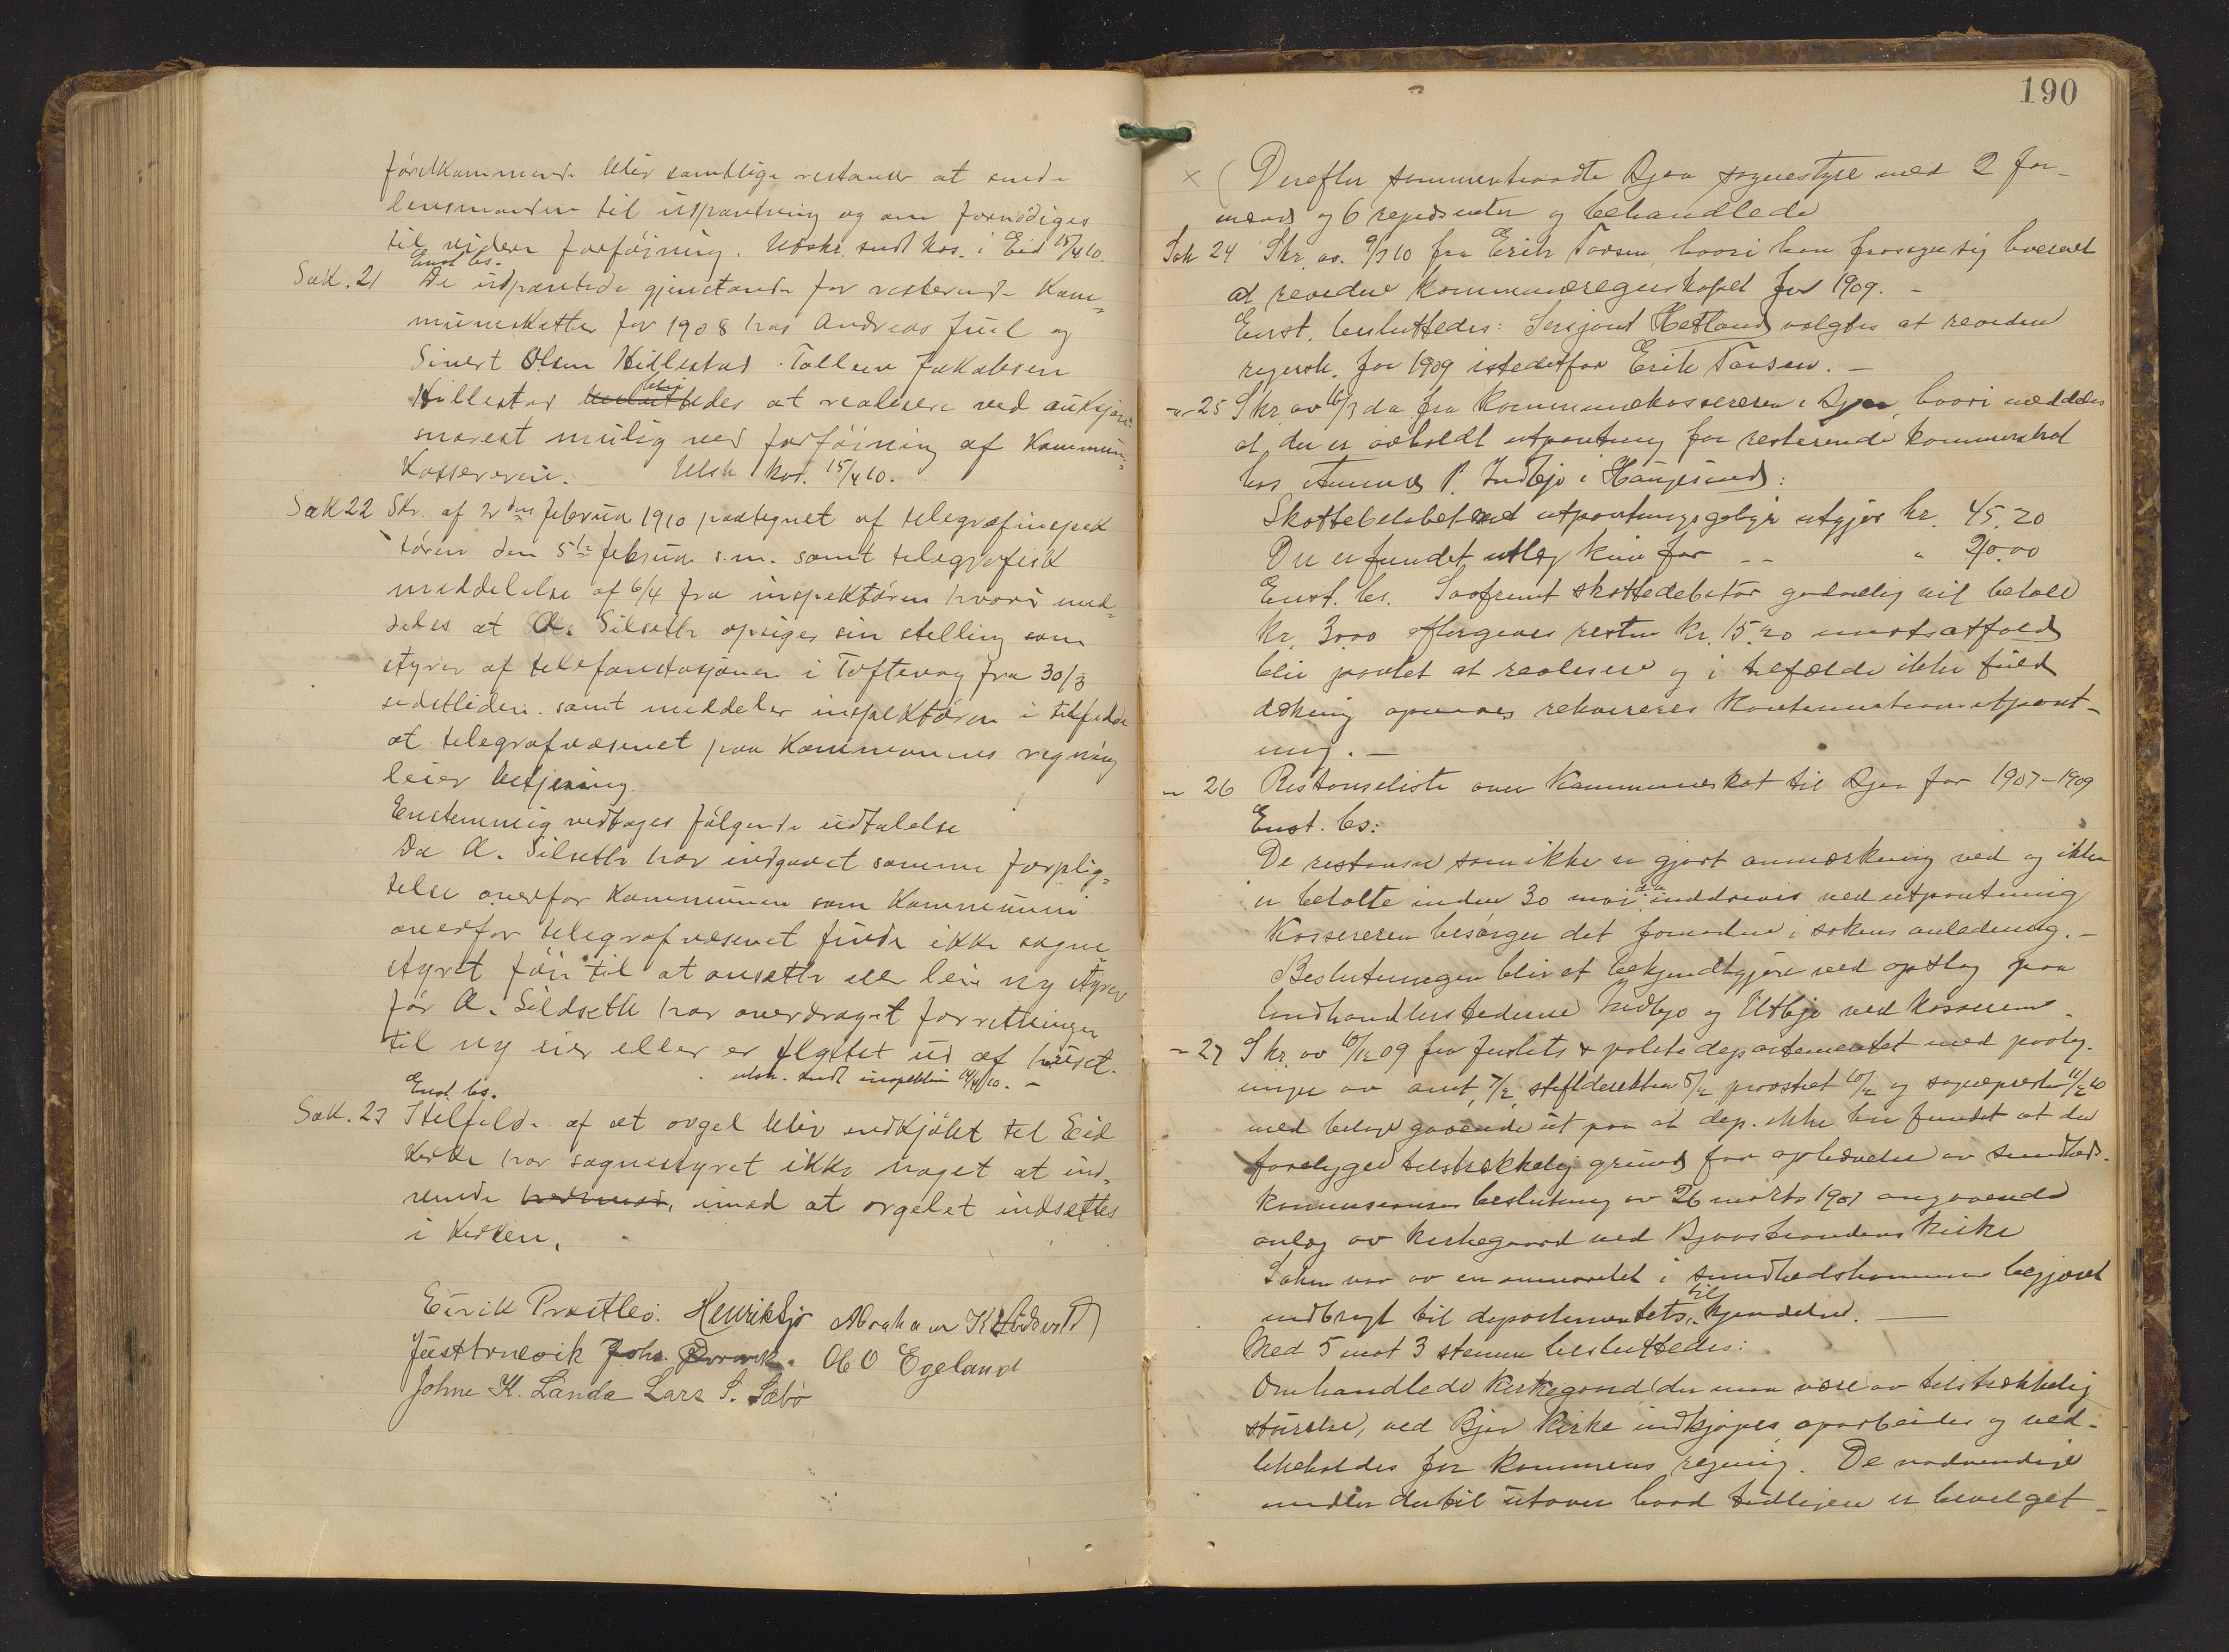 förekommende blir samtlige restanser at sende
lensmanden til utpantning og om fornödiges
til videre forföining. Utskr. sendt kas. i Eid 15/4 10.
Enst bs.
Sak. 21 De udpantede gjenstande for resterende Kom=
muneskatter for 1908 hos Andreas Juel og
Sivert Olsen Hillestad Tolleiv Jakobsen
Hillestad blir at realisere ved auksjon
snarest mulig ved forföining af Kommune
Kassereren. Utsk kas. 15/4 10.
Sak 22 Skr. af 2den februar 1910 paategnet af telegrafinspek
tören den 5te februar s.m. samt telegrafisk
meddelelse af 6/4 fra inspektören hvori med=
deles at A. Silseth opsiges sin stelling som
styrer af telefonstasjonen i Toftevaag fra 30/3
sidstleden samt meddeler inspektören i tilfelde
at telegrafvæsenet paa Kommunens regning
leier betjening.
Enstemmig vedtages fölgende udtalelse
Da A. Silseth har indgaaet samme forplig=
telse overfor Kommunen som Kommunen
overfor telegrafvæsenet finder ikke sogne
styret föie til at ansette eller leie ny styrer
för A. Sildseth har overdraget forretningen
til ny eier eller er flyttet ud af huset.
utsk. sendt inspektören 14/4 10. –
Enst bs.
Sak. 23 I tilfelde af at orgel blir indkjöbt til Eid
Kirke har sognestyret ikke noget at ind=
vende imod at orgelet indsættes
i Kirken.
Eirik Prestbö. Henrik Sjo Abraham K
Johs. Ol O Egeland
Johne K. Landa Lars S. Sæbö
190
× ( Derefter sammentraadte Bjoa sognestyre med 2 for-
mænd og 6 repræsenter og behandlede
Sak 24 Skr. av. 9/3 10 fra Erik Tovsen, hvori han frasiger sig hvervet
at revidere kommuneregnskapet for 1909. –
Enst. besluttedes: Hetland valgtes at revidere
regnsk. for 1909 istedetfor Erik Tovsen. –
" 25 Skr. av 16/3 da fra kommunekassereren i Bjoa, hvori meddeles
at der er avholdt utpantning for resterende kommuneskat
hos P. Indbjo i Haugesund:
Skattebelöbet med utpantningsgebyr utgjör kr. 45.20
Der er fundet utlæg kun for – – " 20.00
Enst. bs. Saafremt skattedebitor godvillig vil betale
kr. 30.00 eftergives resten kr. 15.20 motsatfald
blir pantet at realisere og i tilfælde ikke fuld
dækning opnaaes rekvireres kontinuationsutpant-
ning. –
" 26 Restanseliste over kommuneskat til Bjoa for 1907–1909
Enst. bs:
De restanser som ikke er gjort anmerkning ved og ikke
er betalte inden 30 mai da inddrives ved utpantning
Kassereren besörger det fornödne i sakens anledning. –
Beslutningen blir at bekjendtgjöre ved opslag paa
landhandlerstederne Indbjo og Utbjo ved kassereren.
" 27 Skr. av 10/12 09 fra Justits & politidepartementet med paateg-
ninger av amt. 7/2, stiftsdirektion 5/2 prostiet 10/2 og sogneprest 11/2 10
med bilage gaaende ut paa at dep. ikke har fundet at der
foreligger tilstrækkelig grund for ophævelse av sundheds-
kommisionens beslutning av 26 marts 1907 angaaende
anlæg av kirkegaard ved Bjoastrandens kirke
Saken var av en minoritet i sundhedskommisionen begjæret
indbragt til departementets kjendelse. –
Med 5 mot 3 stemmer besluttedes:
Omhandlede kirkegaard (der maa være av tilstrækkelig
störelse, ved Bjoa kirke indkjöpes, oparbeides og ved-
likeholdes for kommunens regning. De nödvendige
midler dertil utover hvad tidligere er bevilget –